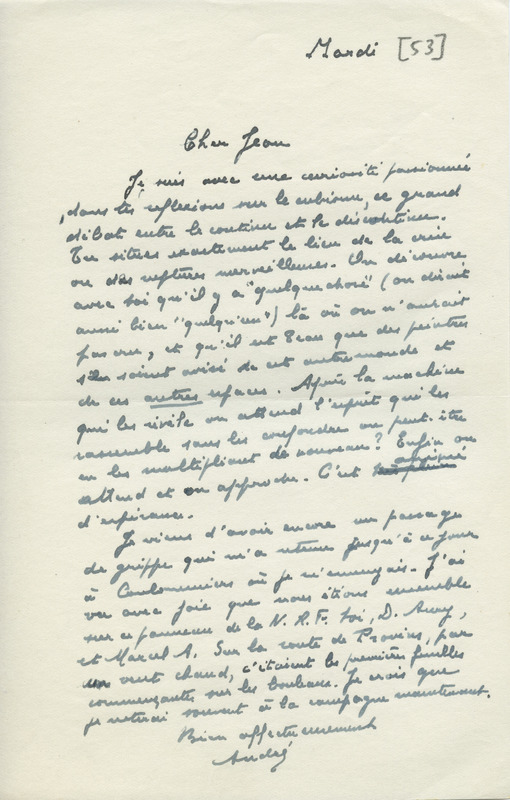 Mardi [53]
Cher Jean
Je suis avec une curiosité passionnée
, dans tes réflexions sur le cubisme, ce grand
débat entre le continu et le discontinu.
Tu situes exactement le lieu de la crise
ou des ruptures merveilleuses. On découvre
avec toi qu'il y a "quelque chose" (on dirait
aussi bien "quelqu'un") là où on n'aurait
pas cru, et qu'il est beau que des peintres
se soient avisé de cet autre monde et
de ces autres espaces. Après la machine
qui les révèle on attend l'esprit qui les
rassemble sans les confondre ou peut-être
en les multipliant de nouveau? Enfin on
attend et on approche. C'est angoissé
d'espérance.
Je viens d'avoir encore un passage
de grippe qui m'a retenu jusqu'à ce jour
à Coulommiers où je m'ennuyais. J'ai
vu avec joie que nous étions ensemble
sur ce panneau de la N.R.F. toi, D. Aury,
et Marcel A. Sur la route de Provins, par
vent chaud, c'étaient les premières feuilles
commençantes sur les bouleaux. Je crois que
je noterai souvent à la campagne maintenant.
Bien affectueusement
André